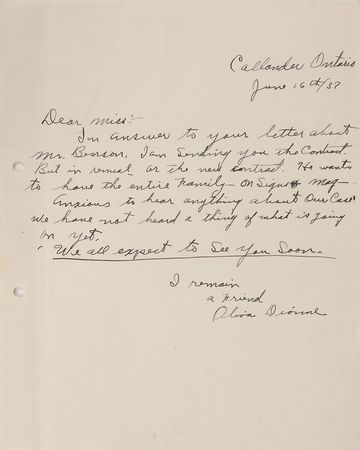 Callander Ontario
June 16th/37
Dear Miss:-
I'm answer to your letter about
Mr. Beerson, I am Sending you the Contract.
But in renual or the new contract. He wants
to have the entire Family - on Signs Mag-
Anxious to hear anything about Our Case
we have not heard a thing of what is going
on yet.
We all expect to See You Soon.
I remain
a Friend
Oliva Dionne